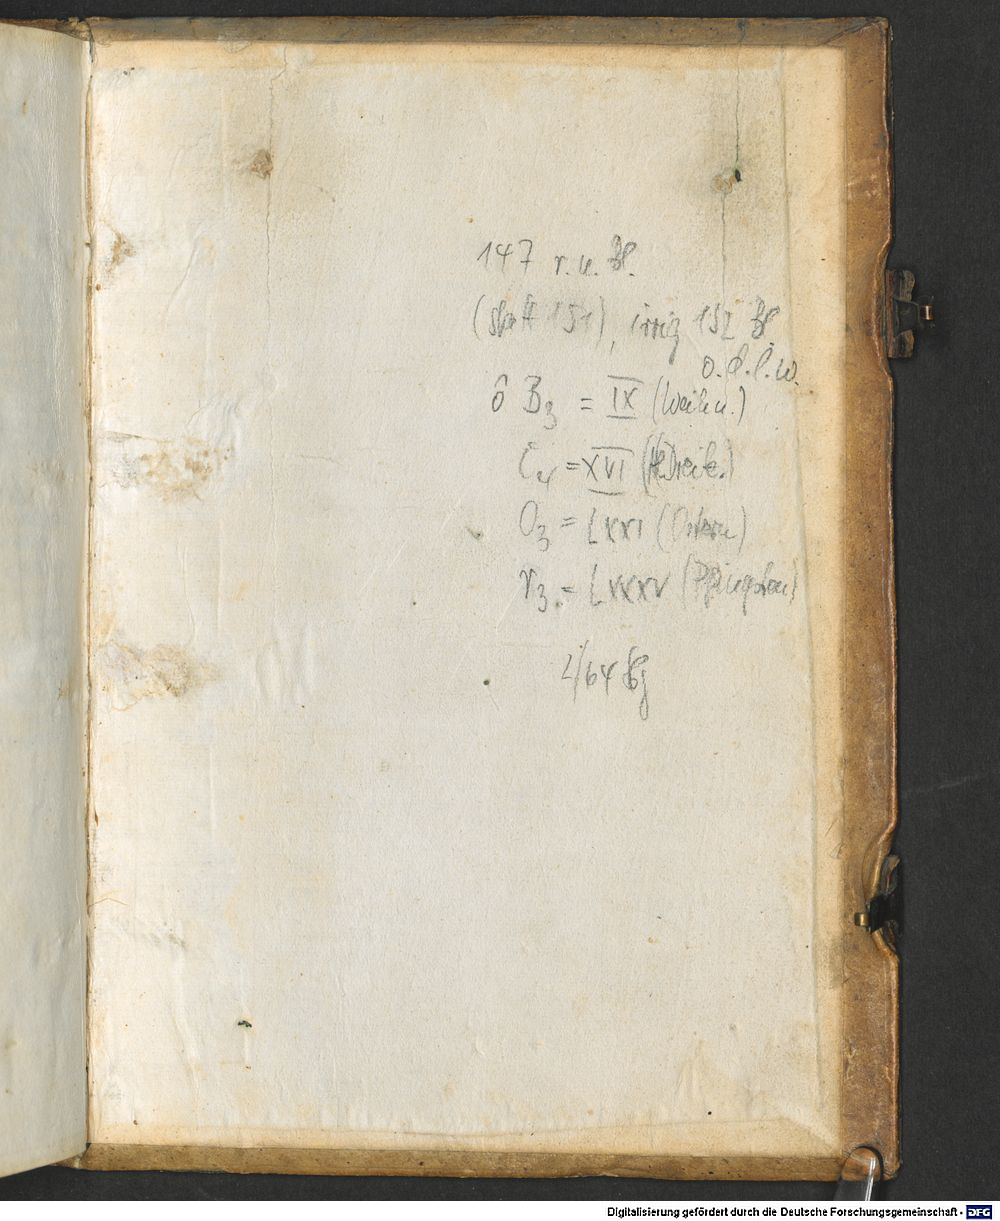 147 r. u. Bl.
(statt 151), irrig 152 Bl
o. d. l. w.
ô B3 = IX (Weihn.)
C4 = XVI (Hl.Dreik.)
O3 = LXXVI (Ostern)
r3 = LXXXXV (Pfingsten)
2/64
Digitalisierung gefördert durch die Deutsche Forschungsgemeinschaft - DFG